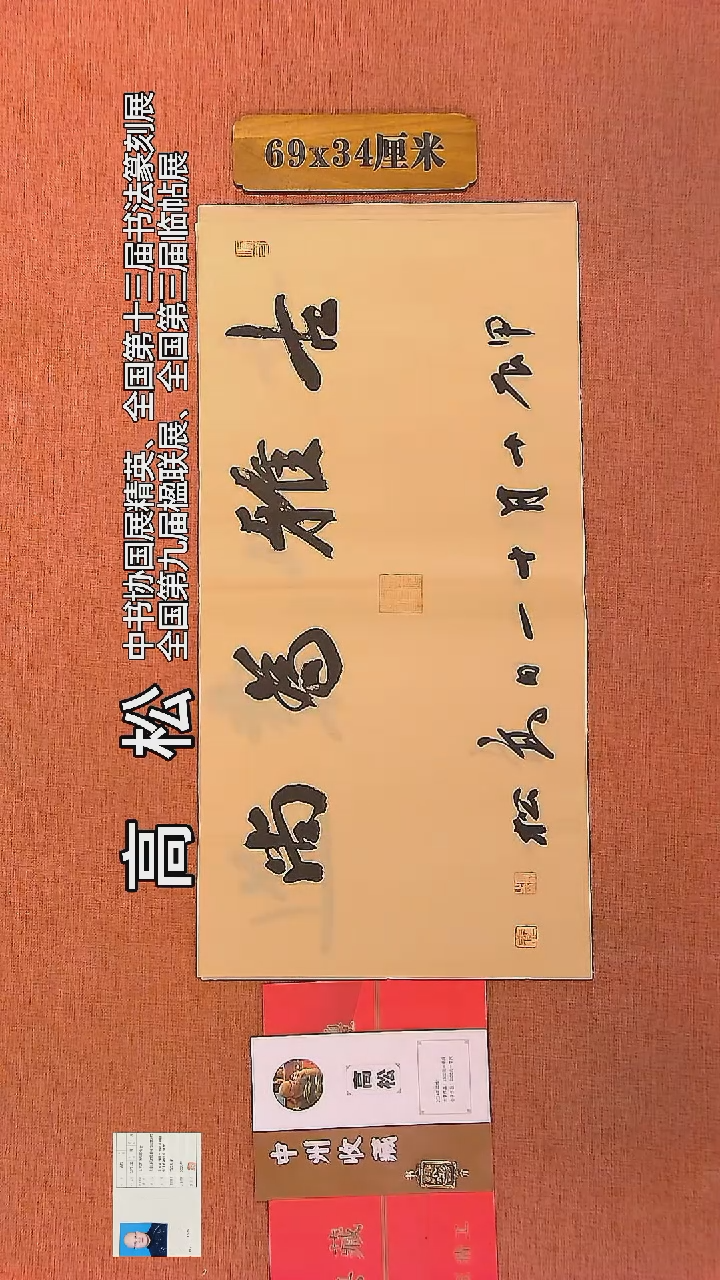 高 松
中书协国展精英、全国第十三届书法篆刻展
全国第九届楹联展、全国第三届临帖展
69x34厘米
古雅為尚
甲辰十月十一日高松
高松
中州收藏
藏